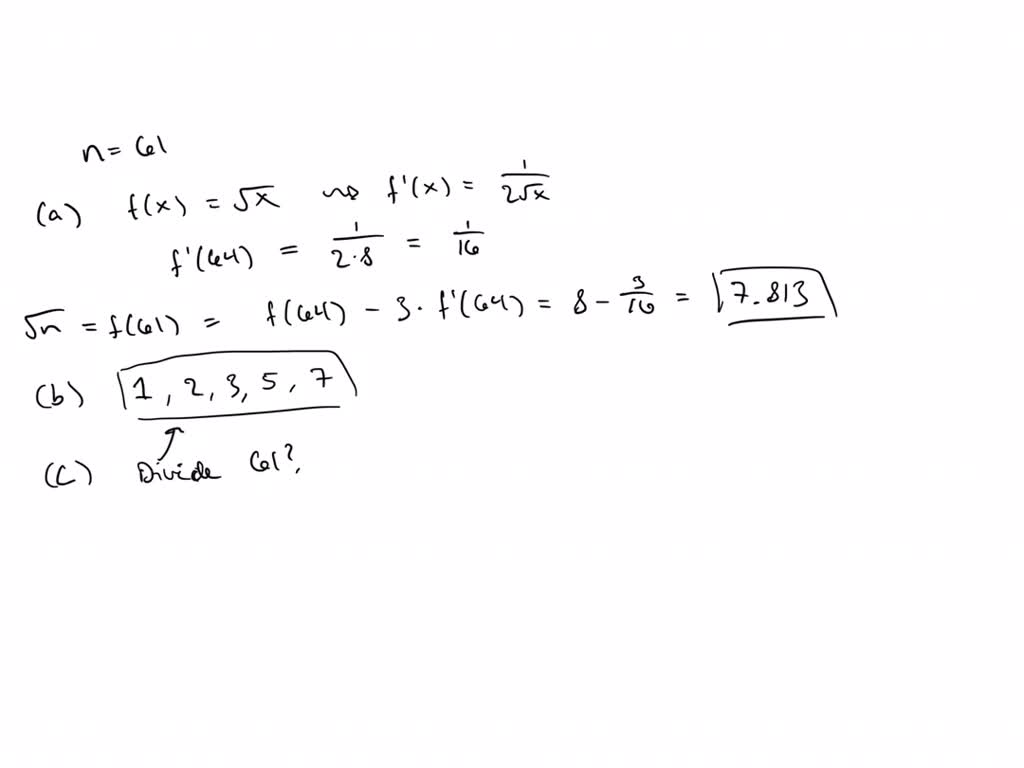 n = 61
(a) f(x) = √x ⇝ f'(x) = 1/(2√x)
f'(64) = 1/(2·8) = 1/16
√n = f(61) = f(64) - 3· f'(64) = 8 - 3/16 = 7.813
(b) 1, 2, 3, 5, 7
(c) Divide 61?